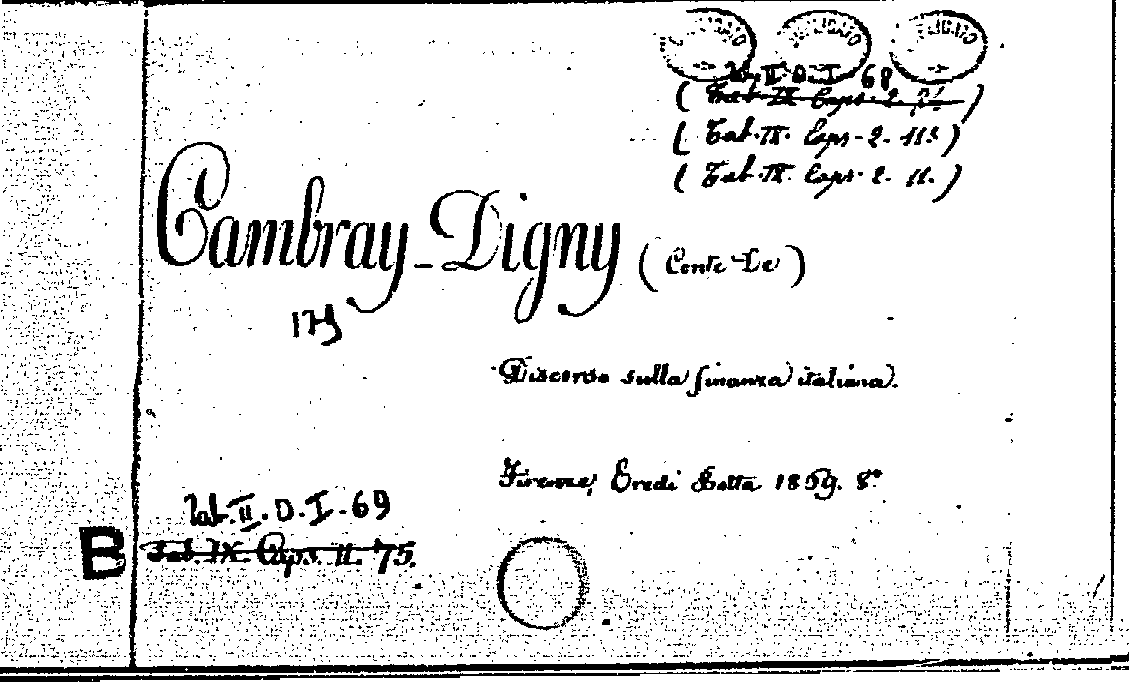 Tab. II. D. I. 68
( Tab. IX Caps. 2.
( Tab. IX. Caps - 2. 113 )
( Tab. IX. Caps. 2. 11. )
Cambray-Digny (Conte De)
Discorso sulla finanza italiana.
Firenze, Eredi Botta 1869. 8°
Tab. II. D. I. 69
B Tab. IX. Caps. 11. 75.